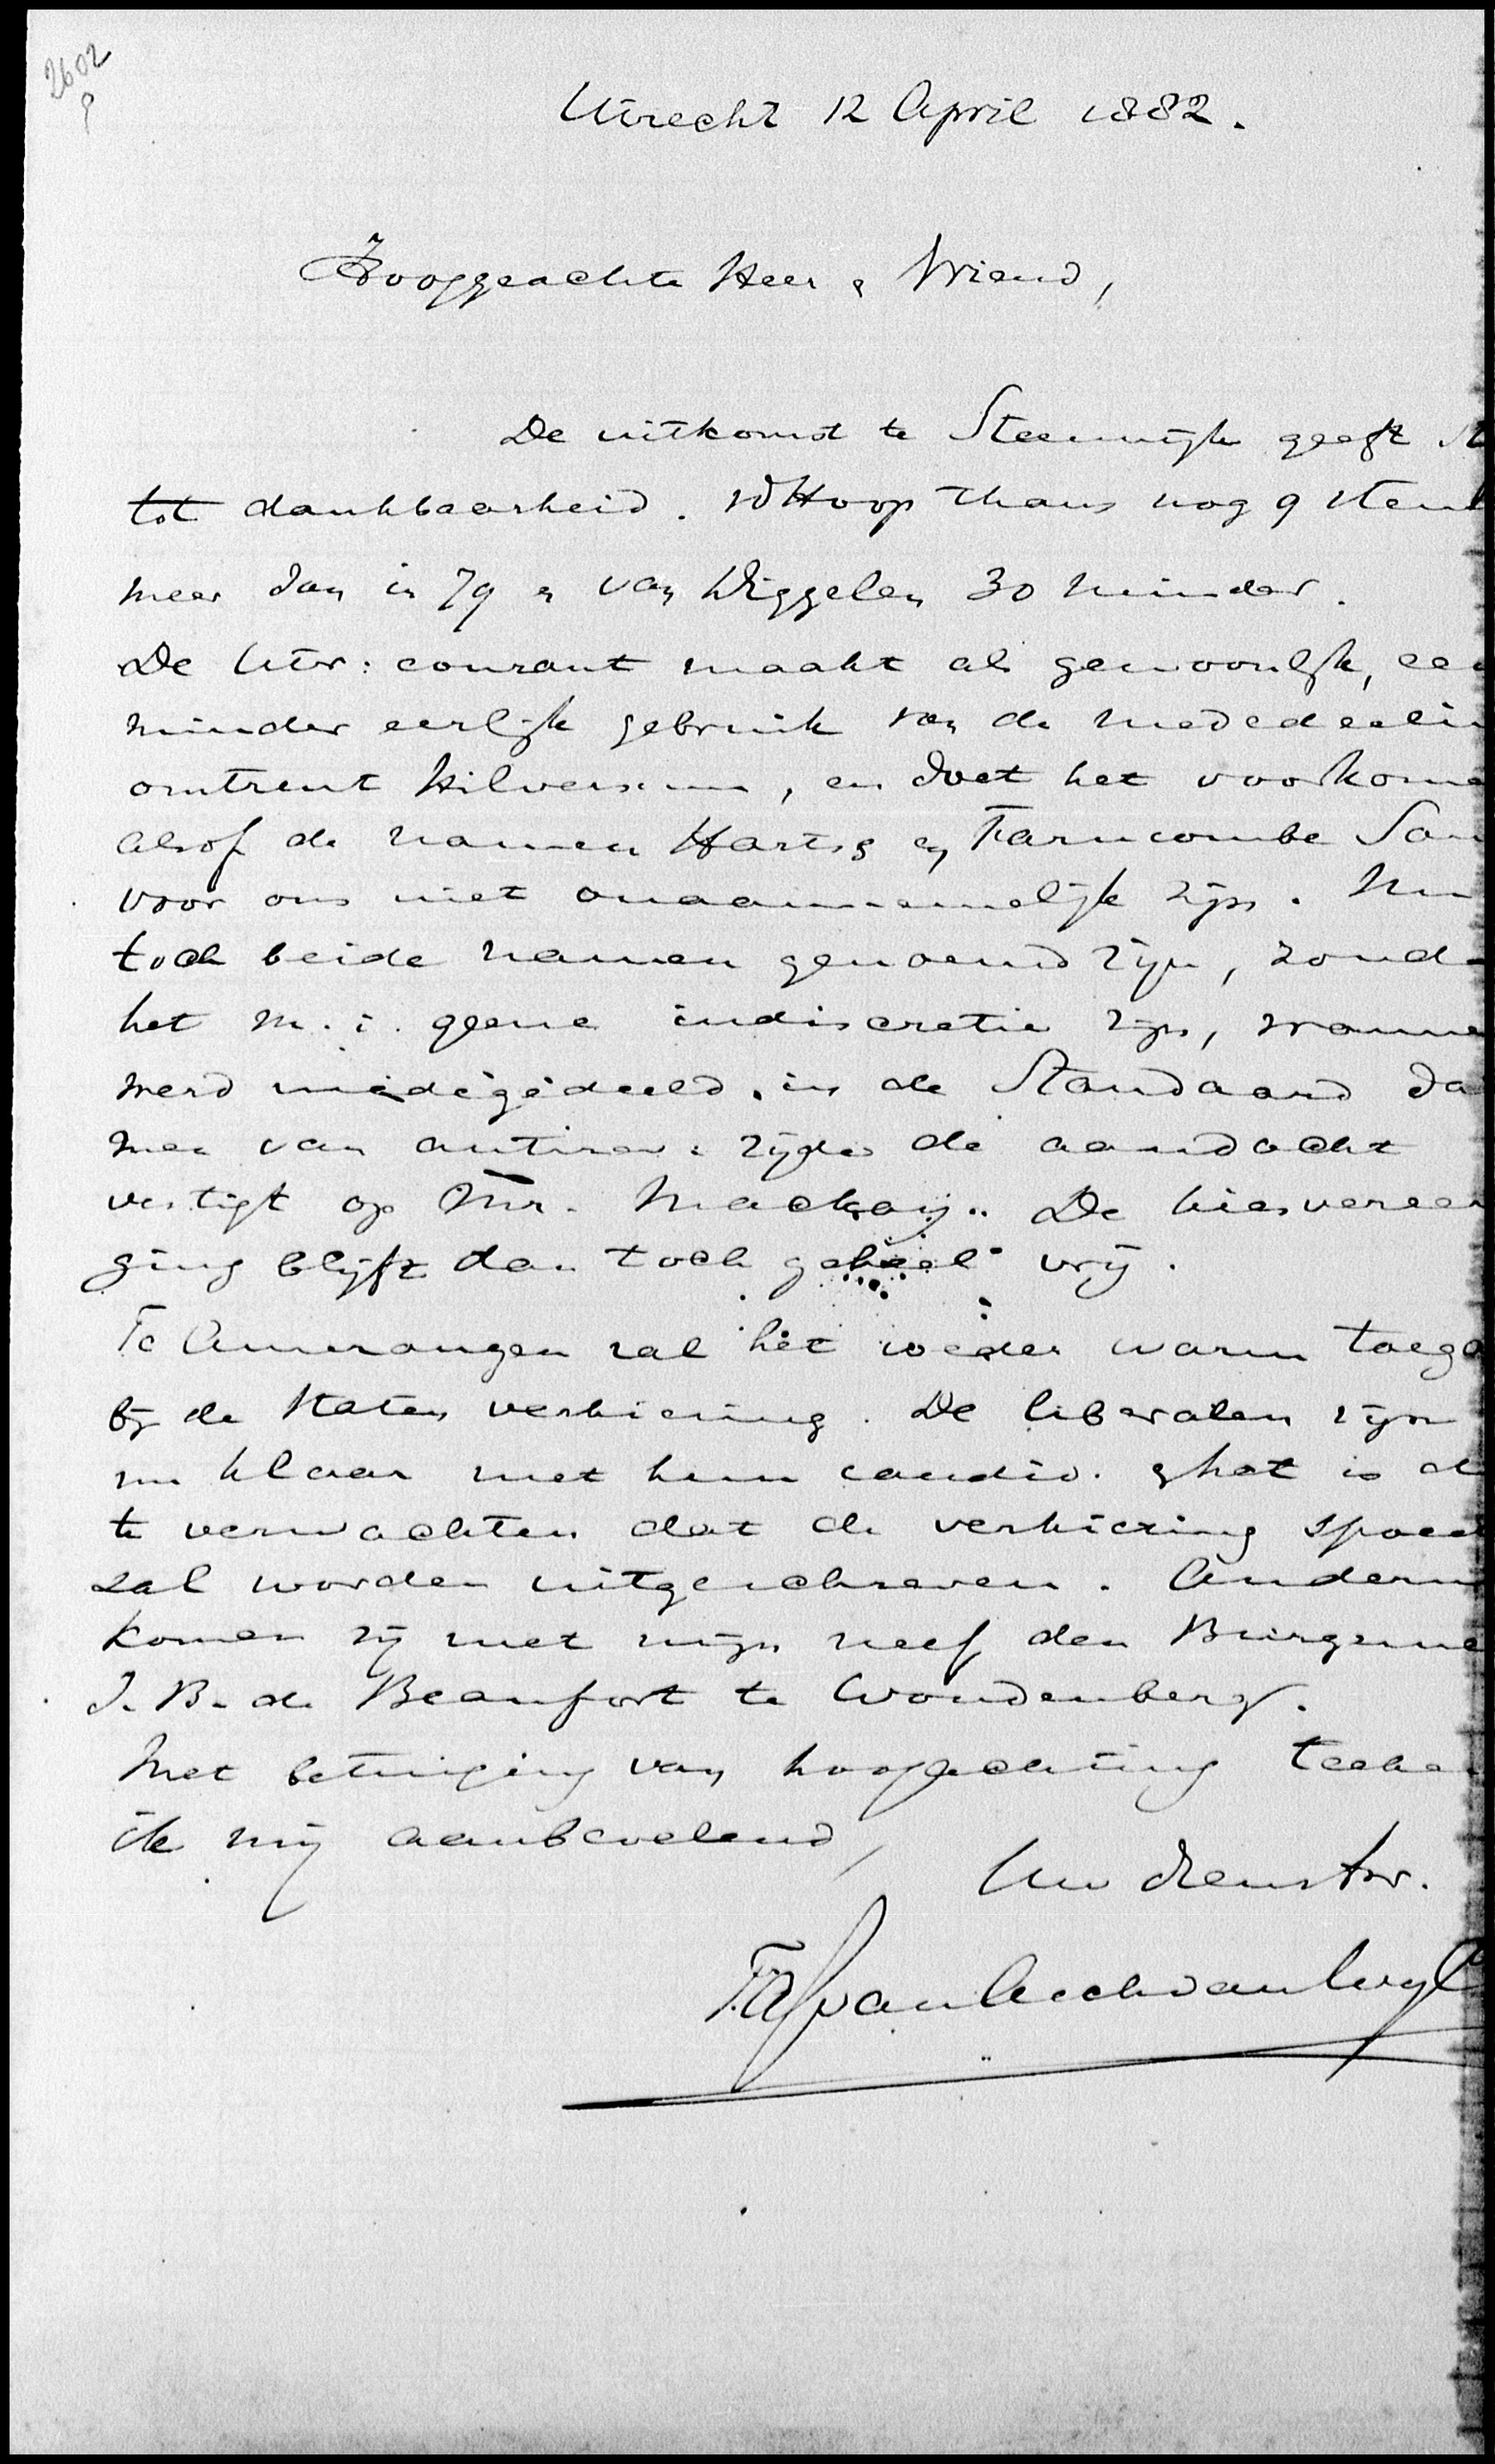 2602
Utrecht 12 April 1882.
Hooggeachte Heer & Vriend,
De uitkomst te Steenwijk geeft st
tot dankbaarheid. vdHoop thans nog 9 stem
meer dan in 79 & van Diggelen 30 minder.
De Utr: courant maakt als gewoonlijk, een
minder eerlijk gebruik van de mededeelin
omtrent Hilversum, en doet het voorkome
alsof de namen Hartsg en Farncombe San
voor ons niet onaannemelijk zijn. Nu
toch beide namen genoemd zijn, zoud
het m. i. geene indiscretie zijn, wanne
werd medegedeeld in de Standaard da
men van antirev: zijde de aandacht
vestigt op Mr. Mackay. De kiesveree
ging blijft dan toch geheel vrij.
Te Amerongen zal het weder warm toega
bij de Staten verkiezing. De liberalen zijn
nu klaar met hun candid. & het is d
te verwachten dat de verkiezing spoed
zal worden uitgeschreven. Anderm
komen zij met mijn neef den Burgeme
J. B. de Beaufort te Woudenberg.
Met betuiging van hoogachting teeke
ik mij aanbevelend,
Uw dienstw.
van Asch van Wyc